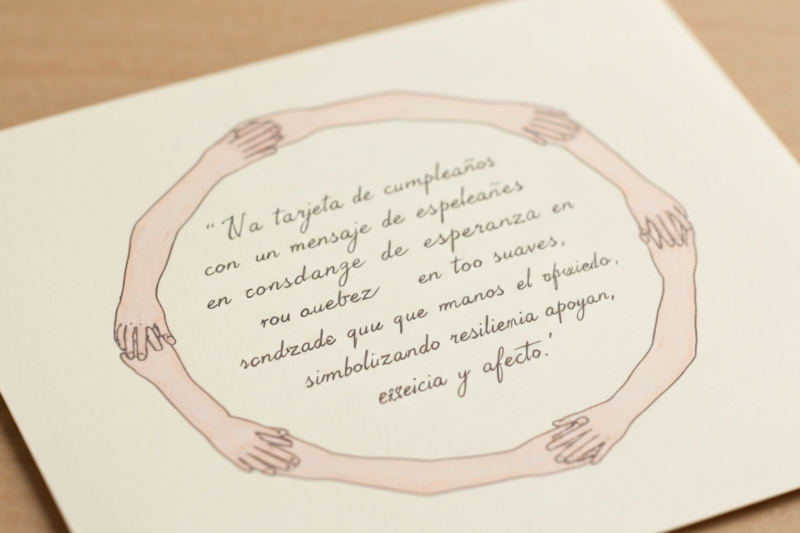 “Na tarjeta de cumpleaños
con un mensaje de espeleañes
en consdange de esperanza en
rou auebez en too suaves,
scndzade quu que manos el
simbolizando resiliemia apoyan,
y afecto.'